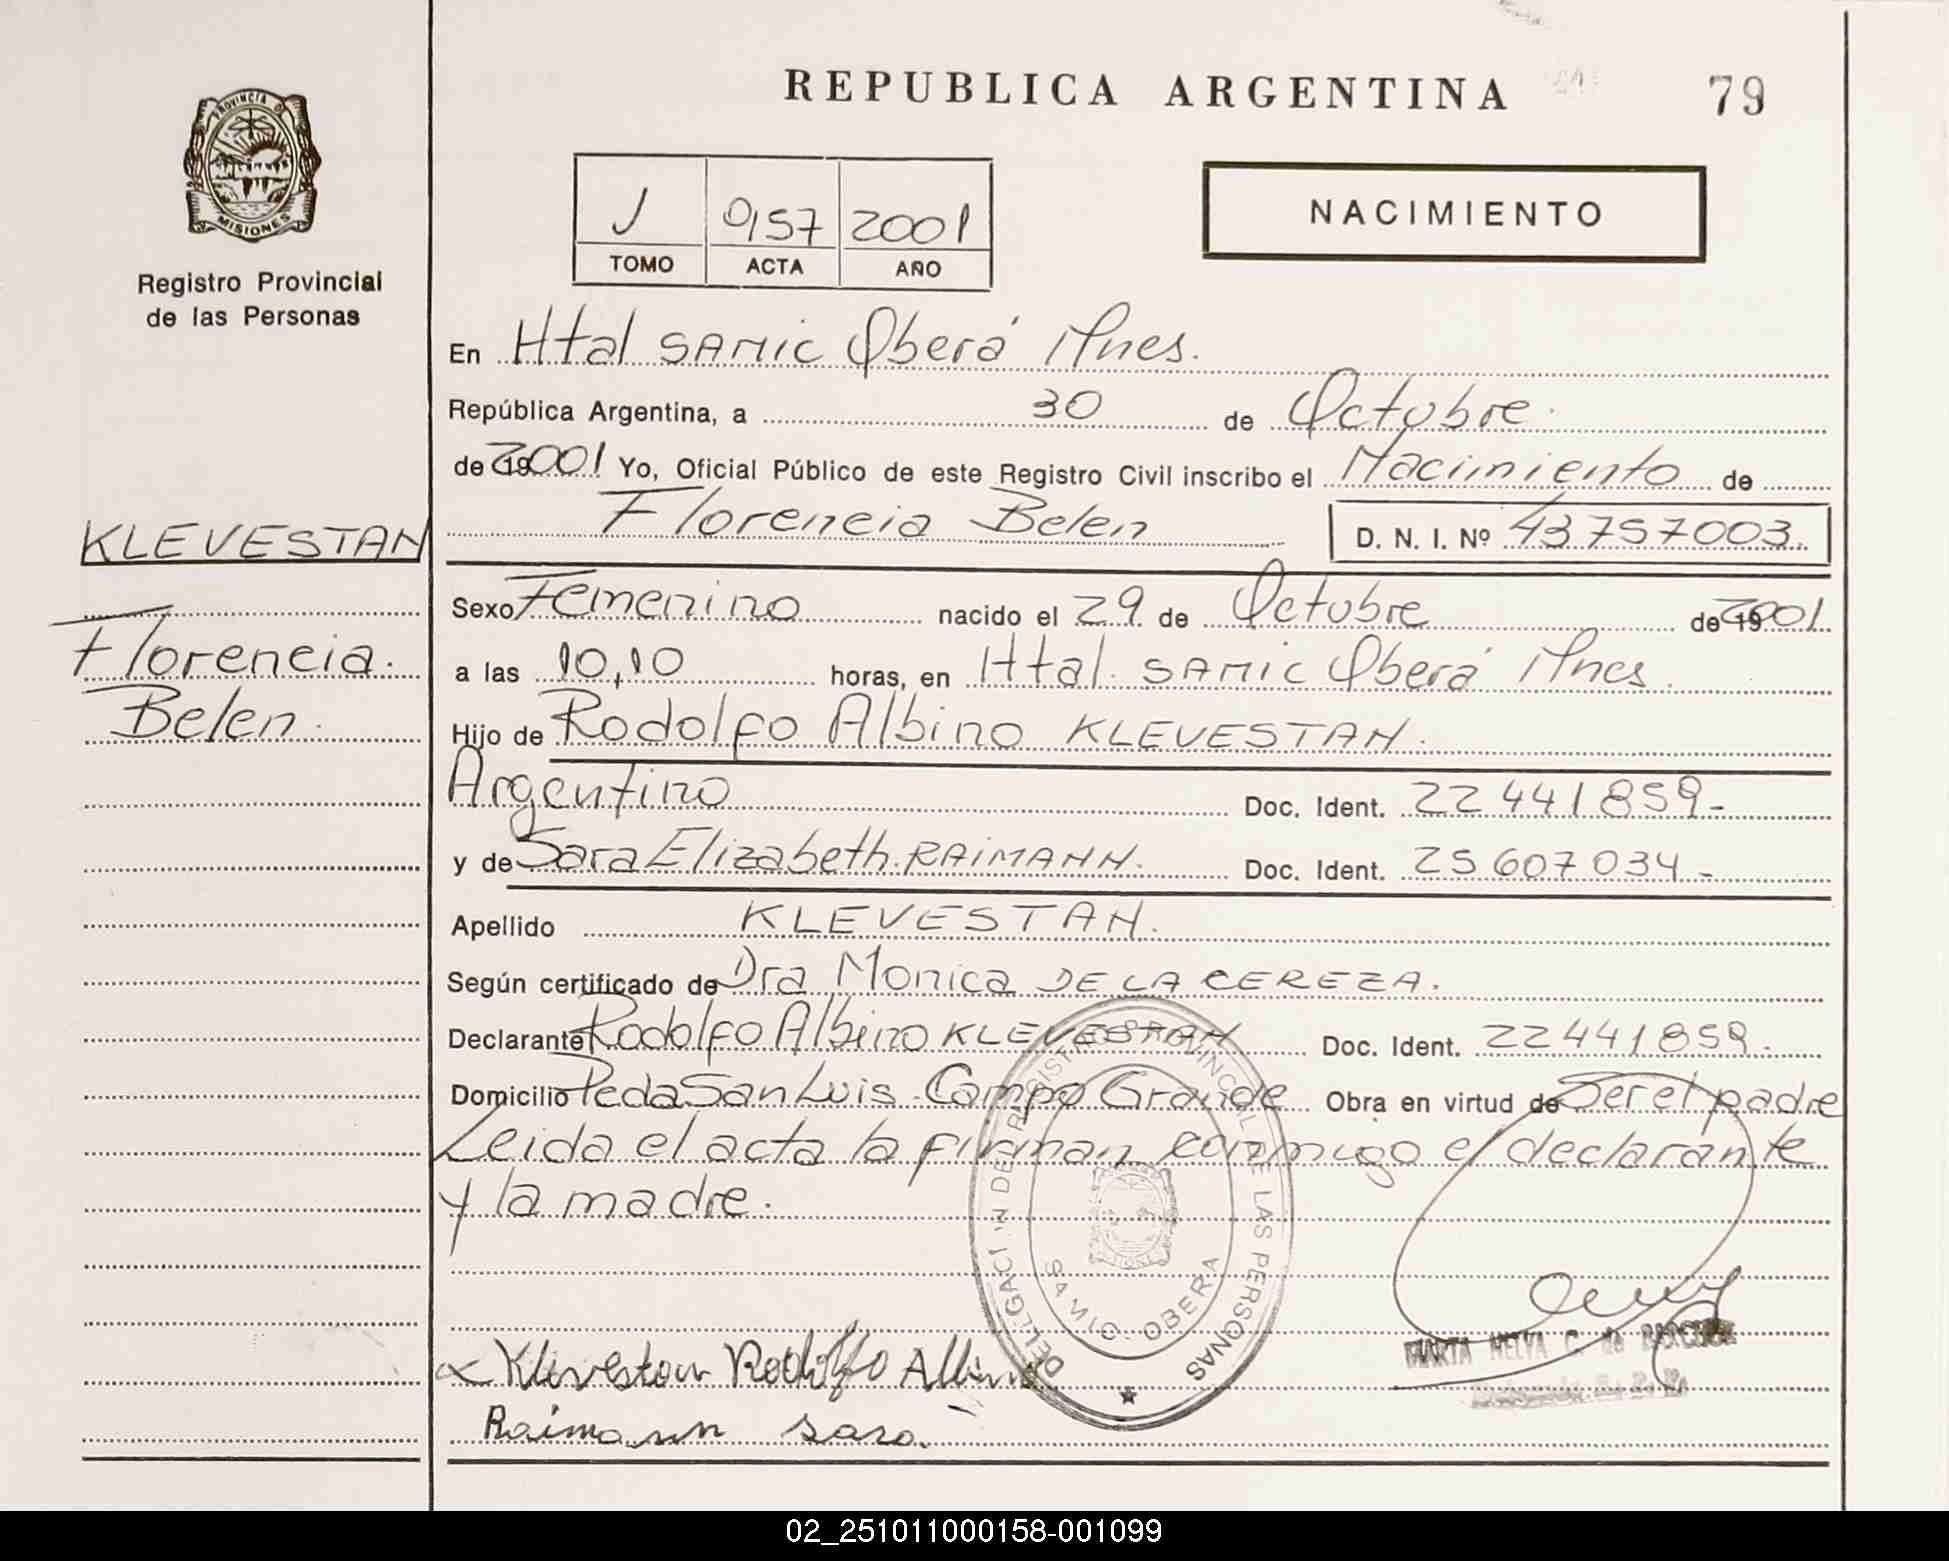 REPUBLICA ARGENTINA
79
PROVINCIA DE
MISIONES
Registro Provincial
de las Personas
J 0157 2001
TOMO ACTA AÑO
NACIMIENTO
En Htal SAMIC Oberá Mnes.
República Argentina, a 30 de Octubre
de 2001 Yo, Oficial Público de este Registro Civil inscribo el Nacimiento de
Florencia Belen D. N. I. Nº 43757003.
KLEVESTAN
Florencia.
Belen.
Sexo Femenino nacido el 29 de Octubre de 2001.
a las 10,10 horas, en Htal. SAMIC Oberá Mnes.
Hijo de Rodolfo Albino KLEVESTAN.
Argentino Doc. Ident. 22441859-
y de Sara Elizabeth RAIMANN. Doc. Ident. 25607034-
Apellido KLEVESTAN.
Según certificado de Dra Monica DE LA CEREZA.
Declarante Rodolfo Albino KLEVESTAN Doc. Ident. 22441859.
Domicilio Pcda San Luis Campo Grande Obra en virtud de Ser el padre
Leida el acta la firman conmigo el declarante
y la madre.
DELEGACION DEL REGISTRO PROVINCIAL DE LAS PERSONAS
SAMIC - OBERA
Klevestan Rodolfo Albino
Raimann sara.
MARTA NELVA C. de
02_251011000158-001099